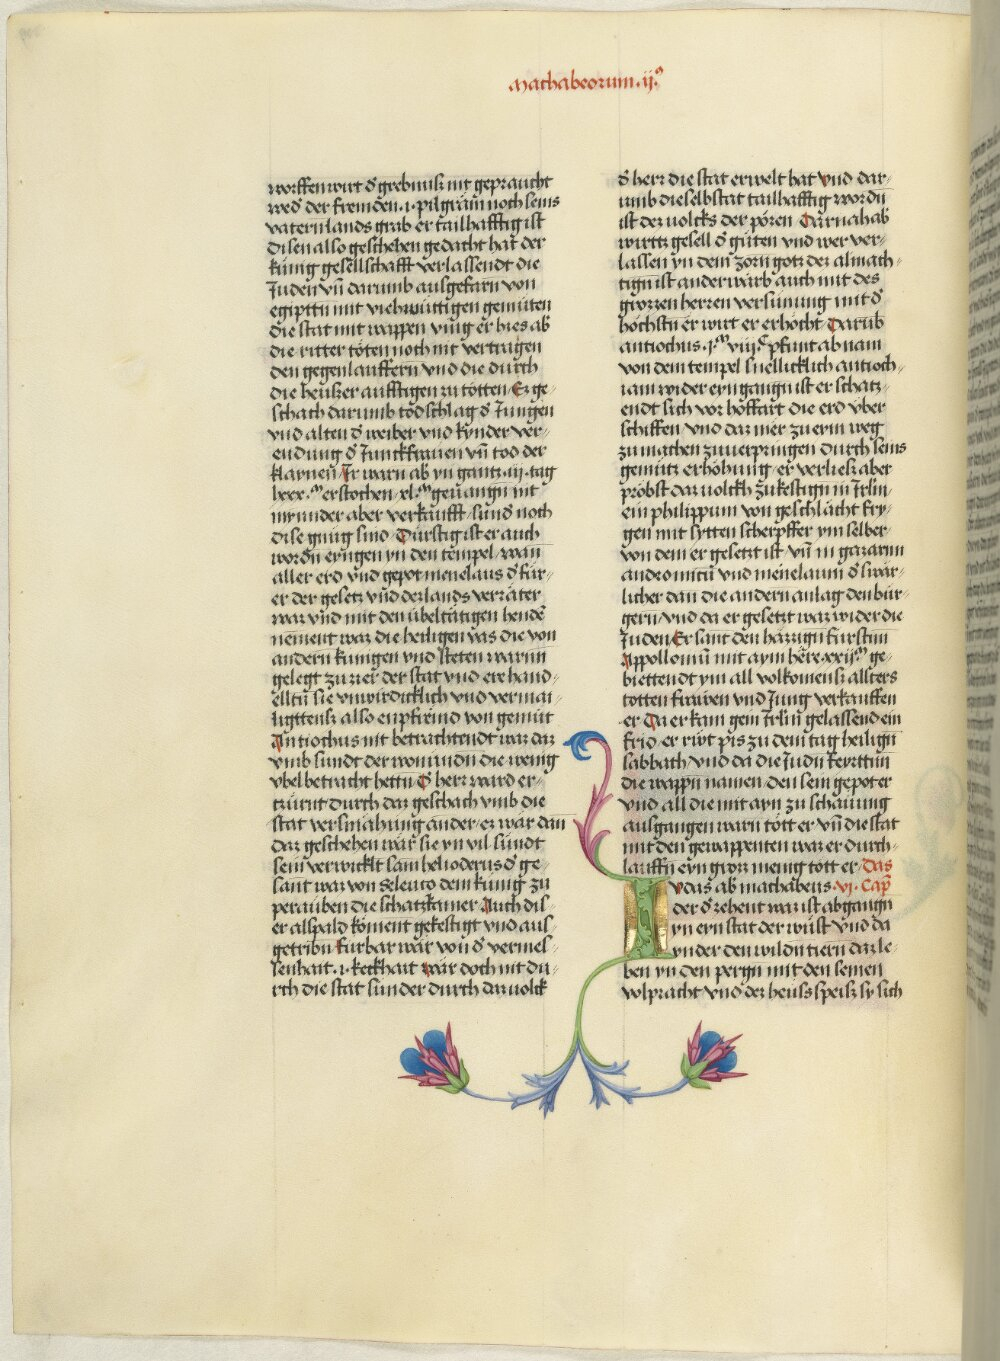 Machabeorum .ij.
worffen wirt d̾ grebnuß nit gepraucht
wed̾ der fremden .i. pilgram noch seins
vaternlands grab er tailhafftig ist
Disen also geschehen gedacht hat der
künig gesellschafft verlassendt die
Juden vn̄ darumb ausgefarn von
egiptn̄ mit viehwüttigen gemüten
die stat mit wappen ving er hies ab
die ritter töten noch nit vertragen
den gegenlauffern vnd die durch
die heuser aufftigen zu tötten Er ge-
schach darumb tödschlag d̾ Jungen
vnd alten d̾ weiber vnd kynder ver-
endung d̾ Junckfrauen vn̄ tod der
klaynen̄ Jr warn ab yn gantz .iij. tag
lxxx.m erstochen .xl.m geuangn̄ nit
mynnder aber verkaufft sund noch
dise gnug sind Dürstig ist er auch
wordn̄ eyngen yn den tempel wan
aller erd vnd gepot menelaus d̾ fur-
er der gesetz vnd der lands verräter
war vnd mit den übeltätigen hendē
nement war die heiligen vas die von
andern künigen vnd steten warnn
gelegt zu zier der stat vnd ere hand-
elltn̄ sie vnwirdicklich vnd vermai-
ligttens also enpfrind von gemüt
Antiochus nit betrachtendt war daz
vmb sundt der wonundn̄ die wenig
vbel betracht hettn̄ D̾ herr ward er-
tzürnt durch daz geschach vmb die
stat versmahung ander er wär dan
daz geschehen wär sie yn vil sündt
sein verwicklt sam heliodorus d̾ ge-
sant war von Seleuco dem künig zu
perauben die schatzkamer Auch dis-
er alspald köment gekestigt vnd aus-
getribn̄ Furbar wär von d̾ vermes-
senhait .i. keckhait wär doch nit du-
rch die stat sünder durch daz uolck
d̾ herr die stat erwelt hat Vnd dar-
umb dieselb stat tailhafftig wordn̄
ist dez uolcks der pören Darnah ab
wirtz gesell d̾ güten vnd wer ver-
lassen yn dem zorn gotz dez almach-
tign̄ ist anderwärb auch mit des
grozzen herren versünung mit d̾
höchstn̄ er wirt er erhöcht Darüb
antiochus .j.m viij.c pfunt ab nam
von dem tempel snellicklich antioch-
iam wider eyngangn̄ ist er schatz-
endt sich vor hoffart die erd über
schiffen vnd daz mer zu eyn̄ weg
zu machen zuuerpringen durch seins
gemütz erhöhung er verliesz aber
pröbst daz uolckh zu kestign̄ in Jrlm̄
ein philippum von geschlächt fry-
gen mit sytten scherpffer ym selber
von dem er gesetzt ist vn̄ in gazarim
andronicū vnd menelaum d̾ swär-
licher dan die andern anlag den bür-
gern vnd da er gesetzt waz wider die
Juden Er sant den häzzign̄ fürstn̄
Appolloniū mit aym here .xxij.m ge-
biettendt ym all volkomens allters
totten frawen vnd Jung verkauffen
er Da er kam gein Jrlm̄ gelassend ein
frid er rwt pis zu dem tag heilign̄
sabbath vnd da die Judn̄ feyrttn̄
die wappn̄ namen den sein gepot er
vnd all die mit ayn zu schauung
ausgangen warn tött er vn̄ die stat
mit den gewappenten war er durch-
lauffn̄ eyn groz menig tött er Das
Judas ab machabeus .vj. Cap̄
der d̾ zehent waz ist abgangn̄
yn eyn stat der wüst vnd da
ynder den wildn̄ tiern daz le-
ben yn den pergn̄ mit den seinen
volpracht vnd dez heus speisz sy sich